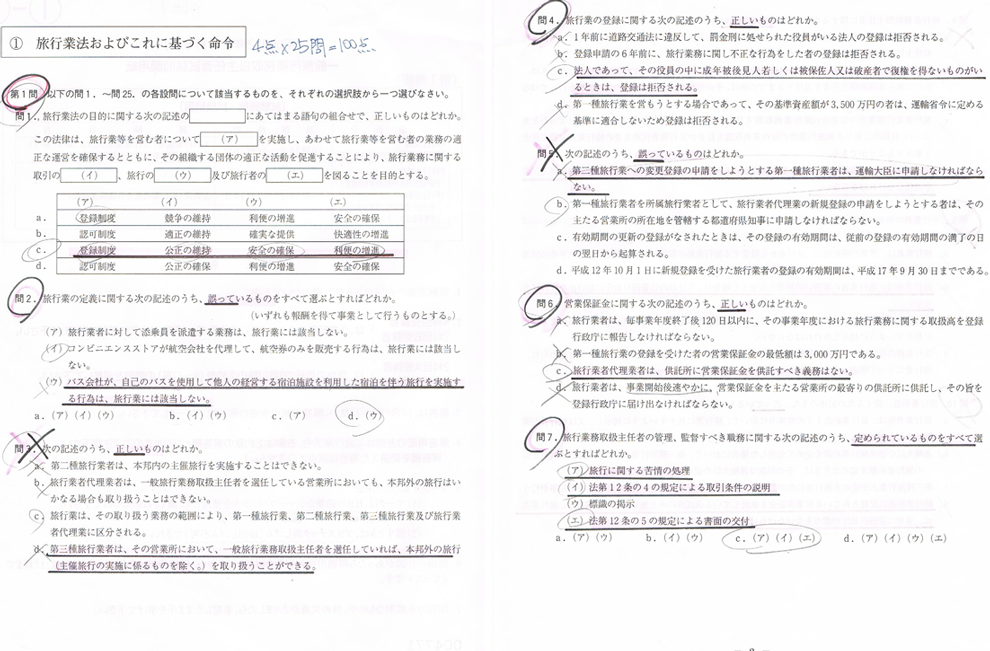 ① 旅行業法およびこれに基づく命令
4点×25問=100点
第1問 以下の問1.～問25.の各設問について該当するものを、それぞれの選択肢から一つ選びなさい。
問1. 旅行業法の目的に関する次の記述の にあてはまる語句の組合せで、正しいものはどれか。
この法律は、旅行業等を営む者について (ア) を実施し、あわせて旅行業等を営む者の業務の適
正な運営を確保するとともに、その組織する団体の適正な活動を促進することにより、旅行業務に関する
取引の (イ) 、旅行の (ウ) 及び旅行者の (エ) を図ることを目的とする。
(ア) (イ) (ウ) (エ)
a. 登録制度 競争の維持 利便の増進 安全の確保
b. 認可制度 適正の維持 確実な提供 快適性の増進
c. 登録制度 公正の維持 安全の確保 利便の増進
d. 認可制度 公正の確保 利便の増進 安全の確保
問2. 旅行業の定義に関する次の記述のうち、誤っているものをすべて選ぶとすればどれか。
(いずれも報酬を得て事業として行うものとする。)
(ア) 旅行業者に対して添乗員を派遣する業務は、旅行業には該当しない。
(イ) コンビニエンスストアが航空会社を代理して、航空券のみを販売する行為は、旅行業には該当し
ない。
(ウ) バス会社が、自己のバスを使用して他人の経営する宿泊施設を利用した宿泊を伴う旅行を実施す
る行為は、旅行業には該当しない。
a. (ア)(イ)(ウ) b. (イ)(ウ) c. (ア) d. (ウ)
問3. 次の記述のうち、正しいものはどれか。
a. 第二種旅行業者は、本邦内の主催旅行を実施することはできない。
b. 旅行業者代理業者は、一般旅行業務取扱主任者を選任している営業所においても、本邦外の旅行はい
かなる場合も取り扱うことはできない。
c. 旅行業は、その取り扱う業務の範囲により、第一種旅行業、第二種旅行業、第三種旅行業及び旅行業
者代理業に区分される。
d. 第三種旅行業者は、その営業所において、一般旅行業務取扱主任者を選任していれば、本邦外の旅行
(主催旅行の実施に係るものを除く。)を取り扱うことができる。
問4. 旅行業の登録に関する次の記述のうち、正しいものはどれか。
a. 1年前に道路交通法に違反して、罰金刑に処せられた役員がいる法人の登録は拒否される。
b. 登録申請の6年前に、旅行業務に関し不正な行為をした者の登録は拒否される。
c. 法人であって、その役員の中に成年被後見人若しくは被保佐人又は破産者で復権を得ないものがい
るときは、登録は拒否される。
d. 第一種旅行業を営もうとする場合であって、その基準資産額が3,500万円の者は、運輸省令に定める
基準に適合しないため登録は拒否される。
問5. 次の記述のうち、誤っているものはどれか。
a. 第三種旅行業への変更登録の申請をしようとする第一種旅行業者は、運輸大臣に申請しなければなら
ない。
b. 第一種旅行業者を所属旅行業者として、旅行業者代理業の新規登録の申請をしようとする者は、その
主たる営業所の所在地を管轄する都道府県知事に申請しなければならない。
c. 有効期間の更新の登録がなされたときは、その登録の有効期間は、従前の登録の有効期間の満了の日
の翌日から起算される。
d. 平成12年10月1日に新規登録を受けた旅行業者の登録の有効期間は、平成17年9月30日までである。
問6. 営業保証金に関する次の記述のうち、正しいものはどれか。
a. 旅行業者は、毎事業年度終了後120日以内に、その事業年度における旅行業務に関する取扱高を登録
行政庁に報告しなければならない。
b. 第一種旅行業の登録を受けた者の営業保証金の最低額は3,000万円である。
c. 旅行業者代理業者は、供託所に営業保証金を供託すべき義務はない。
d. 旅行業者は、事業開始後速やかに、営業保証金を主たる営業所の最寄りの供託所に供託し、その旨を
登録行政庁に届け出なければならない。
問7. 旅行業務取扱主任者の管理、監督すべき職務に関する次の記述のうち、定められているものをすべて選
ぶとすればどれか。
(ア) 旅行に関する苦情の処理
(イ) 法第12条の4の規定による取引条件の説明
(ウ) 標識の掲示
(エ) 法第12条の5の規定による書面の交付
a. (ア)(ウ) b. (イ)(ウ) c. (ア)(イ)(エ) d. (ア)(イ)(ウ)(エ)